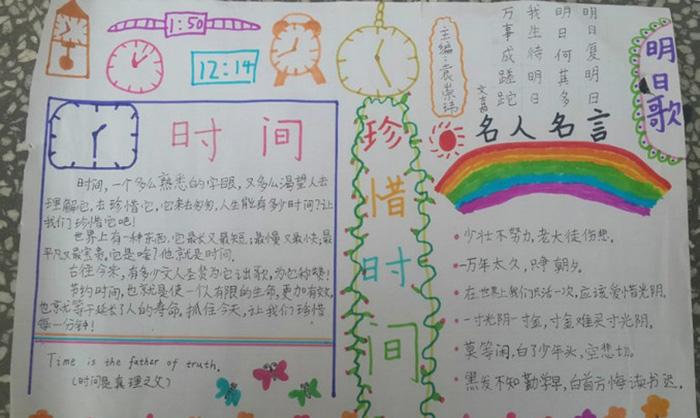 1:50
12:14
主编:袁崇玮
明日歌
明日复明日
明日何其多
我生待明日
万事成蹉跎
文嘉
时间
时间,一个多么熟悉的字眼,又多么渴望人去
理解它,去珍惜它,它来去匆匆,人生能有多少时间?让
我们珍惜它吧!
世界上有一种东西,它最长又最短;最慢又最快;最
平凡又最宝贵,它是啥?他就是时间.
古往今来,有多少文人圣贤为它讴歌,为它称赞!
节约时间,也就是使一个人有限的生命,更加有效,
也就等于延长了人的寿命,抓住今天,让我们珍惜
每一分钟!
Time is the father of truth.
(时间是真理之父)
珍惜时间
名人名言
少壮不努力,老大徒伤悲.
一万年太久,只争朝夕.
在世界上我们只活一次,应该爱惜光阴.
一寸光阴一寸金,寸金难买寸光阴.
莫等闲,白了少年头,空悲切.
黑发不知勤学早,白首方悔读书迟.